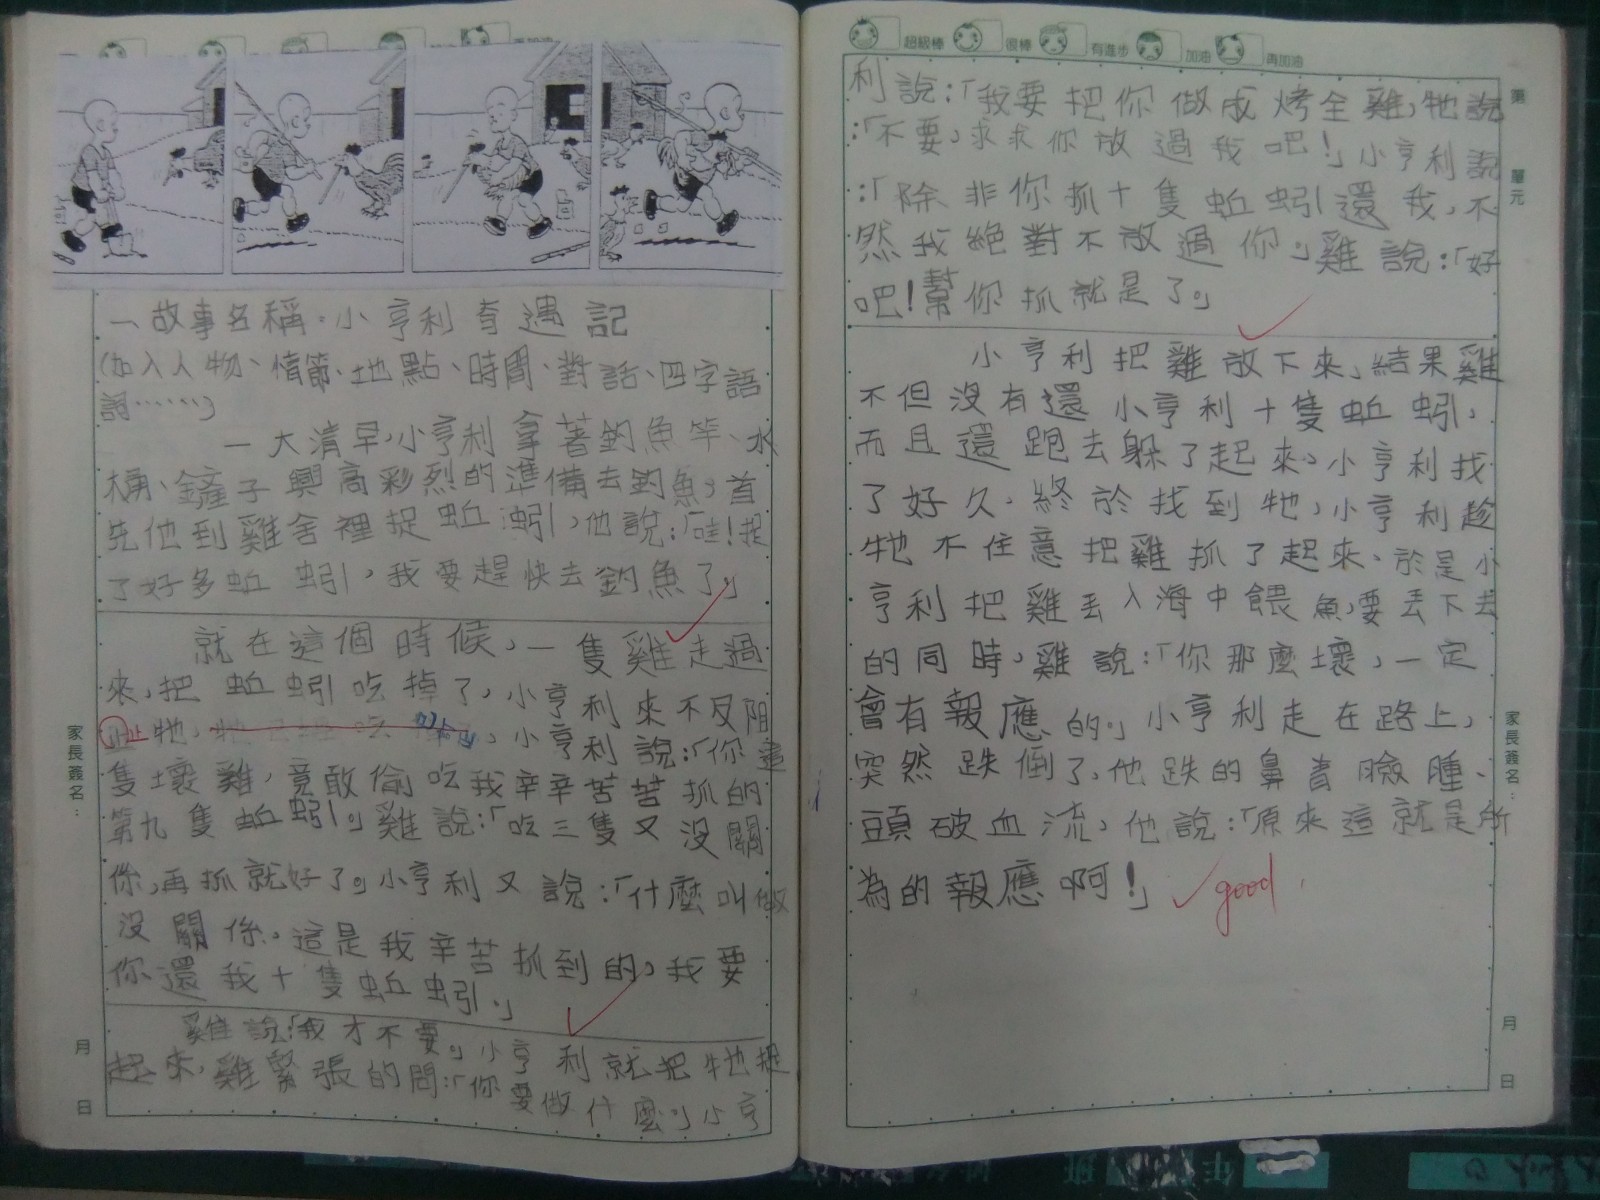 一故事名稱:小亨利奇遇記
(加入人物、情節、地點、時間、對話、四字語
詞……)
一大清早,小亨利拿著釣魚竿、水
桶、鏟子興高彩烈的準備去釣魚,首
先他到雞舍裡捉蚯蚓,他說:「哇!捉
了好多蚯蚓,我要趕快去釣魚了。」
就在這個時候,一隻雞走過
來,把蚯蚓吃掉了,小亨利來不及阻
止牠,小亨利說:「你這
隻壞雞,竟敢偷吃我辛辛苦苦抓的
第九隻蚯蚓。」雞說:「吃三隻又沒關
係,再抓就好了。」小亨利又說:「什麼叫做
沒關係,這是我辛苦抓到的,我要
你還我十隻蚯蚓。」
雞說:「我才不要。」小亨利就把牠捉
起來,雞緊張的問:「你要做什麼」小亨
家長簽名:
月
日
超級棒 很棒 有進步 加油 再加油
利說:「我要把你做成烤全雞,牠說
:「不要,求求你放過我吧!」小亨利說
:「除非你抓十隻蚯蚓還我,不
然我絕對不放過你。」雞說:「好
吧!幫你抓就是了。」
小亨利把雞放下來,結果雞
不但沒有還小亨利十隻蚯蚓,
而且還跑去躲了起來,小亨利找
了好久,終於找到牠,小亨利趁
牠不住意把雞抓了起來,於是小
亨利把雞丟入海中餵魚,要丟下去
的同時,雞說:「你那麼壞,一定
會有報應的。」小亨利走在路上,
突然跌倒了,他跌的鼻青臉腫、
頭破血流,他說:「原來這就是所
為的報應啊!」
good
第
單元
家長簽名:
月
日